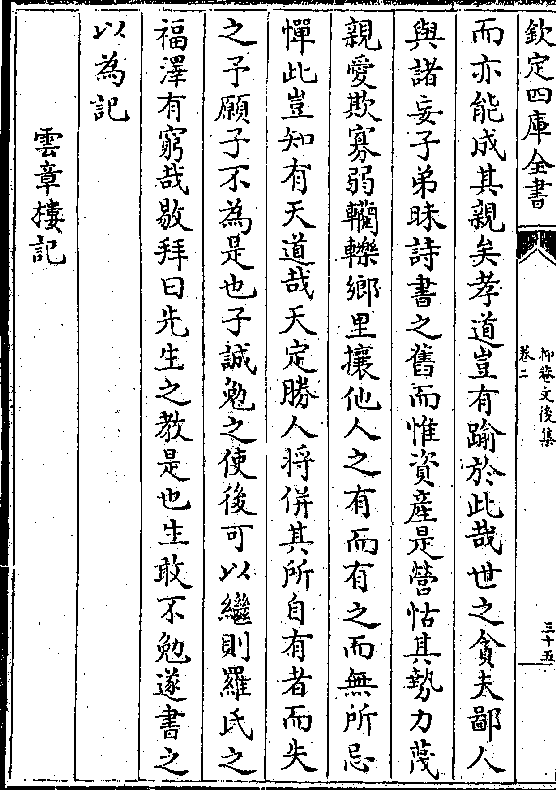 欽定四庫全書
抑菴文後集
卷二
三十五
而亦能成其親矣孝道豈有踰於此哉世之貪夫鄙人
與諸妄子弟昧詩書之舊而惟資產是營怙其勢力蔑
親愛欺寡弱轥轢鄉里攘他人之有而有之而無所忌
憚此豈知有天道哉天定勝人将併其所自有者而失
之予願子不為是也子誠勉之使後可以繼則羅氏之
福澤有窮哉敬拜曰先生之教是也生敢不勉遂書之
以為記
雲章樓記